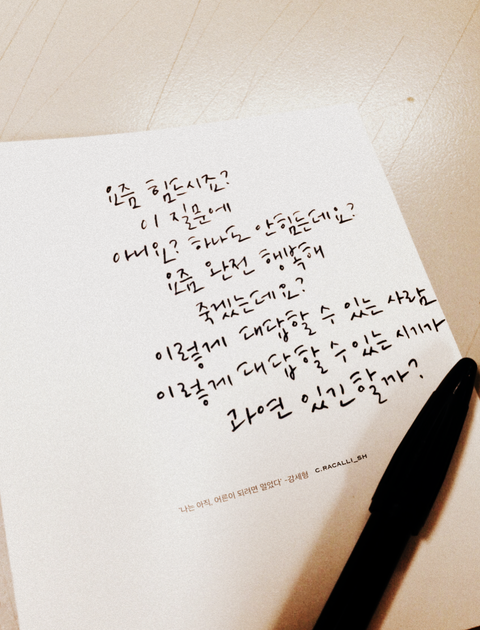 요즘 힘드시죠?
이 질문에
아니요? 하나도 안힘든데요?
요즘 완전 행복해
죽겠는데요?
이렇게 대답할 수 있는 사람
이렇게 대답할 수 있는 시기가
과연 있긴할까?
'나는 아직, 어른이 되려면 멀었다' -강세형 C.RACALLI_SH